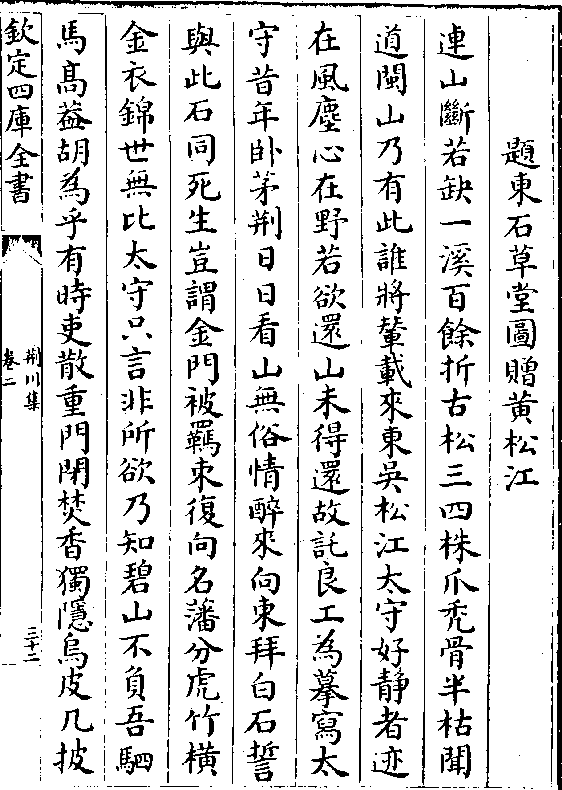 題東石草堂圖贈黄松江
連山斷若缺一溪百餘折古松三四株爪秃骨半枯聞
道閩山乃有此誰將輦載來東吳松江太守好静者迹
在風塵心在野若欲還山未得還故託良工為摹寫太
守昔年卧茅荆日日看山無俗情醉來向東拜白石誓
與此石同死生豈謂金門被羈束復向名藩分虎竹横
金衣錦世無比太守只言非所欲乃知碧山不負吾駟
馬髙葢胡為乎有時吏散重門閉焚香獨隱烏皮几披
欽定四庫全書
荆川集
卷二
三十二